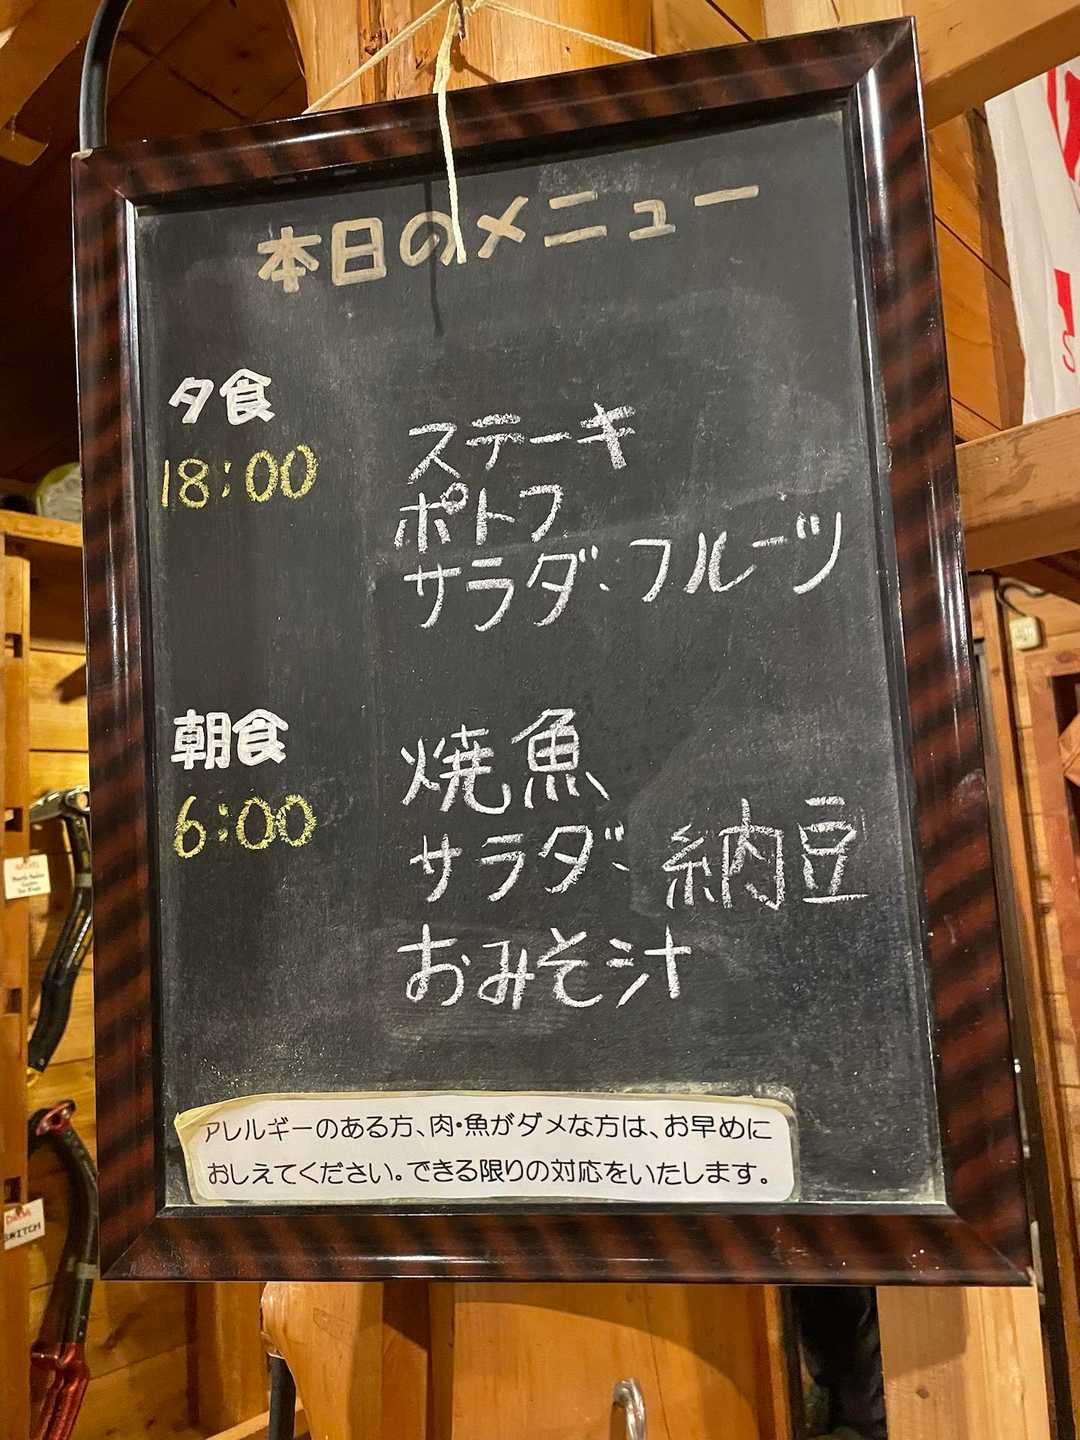 本日のメニュー
夕食
18:00
ステーキ
ポトフ
サラダ、フルーツ
朝食
6:00
焼魚
サラダ、納豆
おみそ汁
アレルギーのある方、肉・魚がダメな方は、お早めに
おしえてください。できる限りの対応をいたします。
SWITCH